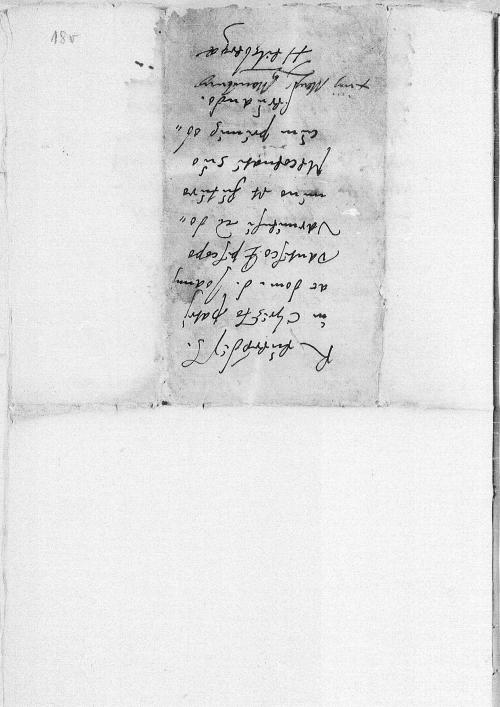 18v
in Christo patri
ac domi. d. Joanni
Dantisco Episcopo
Varmiensi ac do„
mino et
Mecoenati suo
cum primis ob„
seruando.
Heilsbergae